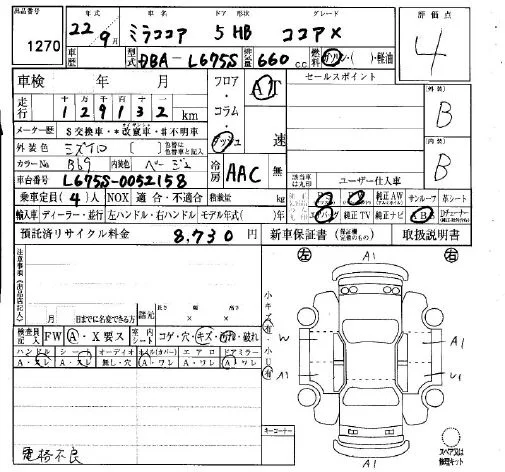 出品番号 年式 車名 ドア 形状 グレード 評価点
1270 22年 9月 ミラココア 5 HB ココアX 4
車歴 型式 DBA-L675S 排気量 660 c.c. 燃料 ガソリン・( )・軽油
車検 年 月 フロア・コラム・ダッシュ AT 速 セールスポイント (外装) B
走行 十 万 千 百 十 一
129132 km
メーター歴 S交換車・*改竄車・#不明車 (内装) B
外装色 ミズイロ [ ] 色替は色替車と記入
カラーNo. B69 内装色 ベージュ 冷房 AAC 無 該当装備は丸印 ユーザー仕入車
車台番号 L675S-0052158
乗車定員(4)人 NOX 適合・不適合 積載量 kg 純正AW サンルーフ 革シート
輸入車 ディーラー・並行 左ハンドル・右ハンドル モデル年式( )年 エアバッグ 純正TV 純正ナビ ABS
預託済リサイクル料金 8,730円 新車保証書 取扱説明書
注意事項(出品店記入) 左 A1 右
小キズ有 小凹有
W A1
月 日までに名変できる方 諸元 長さ 幅 高さ
検査員記入 FW A・X要ス 室内シート コゲ・穴・キズ・汚れ・破れ
ハンドル シート オーディオ ホイル(カバー) エアロ ドアミラー
A・スレ A・スレ 無し・穴 A・ワレ A・ワレ A・ワレ
A1 U1
キーコーナー
電格不良 A1 スペア又は修理キット